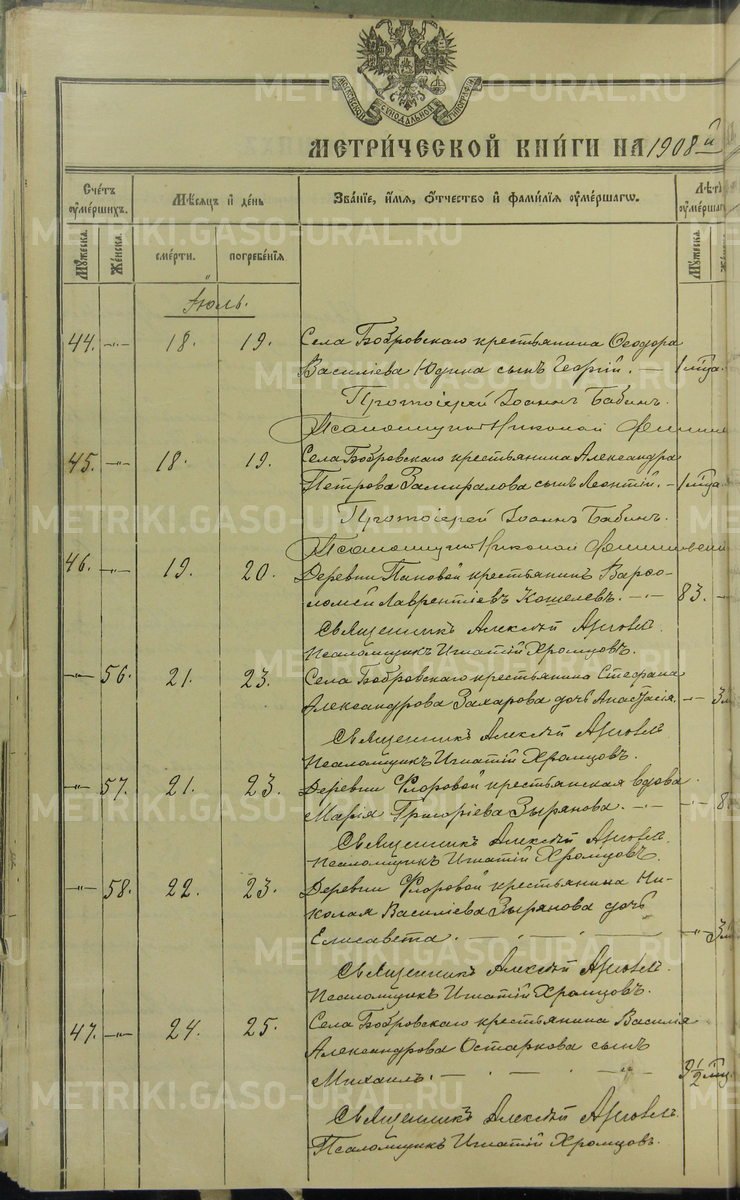 МОСКОВСКОЙ СѴНОДАЛЬНОЙ ТИПОГРАФІИ
МЕТРИЧЕСКОЙ КНИГИ НА 1908й
Счетъ умершихъ.
Мѣсяцъ и день
Званіе, имя, отчество и фамилія умершаго.
Мужеска.
Женска.
смерти.
погребенія
Мужеска.
Іюль.
44. -"- 18. 19. Села Бобровскаго крестьянина Ѳеодора
Василіева Юдина сынъ Георгій. — 1 м͠ца.
Протоіерей Іоаннъ Бабинъ.
Псаломщикъ Николай
45. -"- 18. 19. Села Бобровскаго крестьянина Александра
Петрова Замиралова сынъ Леонтій. - 1 м͠ца.
Протоіерей Іоаннъ Бабинъ.
Псаломщикъ Николай
46. -"- 19. 20. Деревни Пановой крестьянинъ Варѳо-
ломей Лаврентіевъ Кошелевъ. — 83. -
Священникъ Алексѣй
Псаломщикъ Игнатій Хромцовъ.
-"- 56. 21. 23. Села Бобровскаго крестьянина Стефана
Александрова Захарова дочь Анастасія -"- 3
Священникъ Алексѣй
Псаломщикъ Игнатій Хромцовъ.
-"- 57. 21. 23. Деревни Фроловой крестьянская вдова
Марія Григоріева Зырянова. -"- 8
Священникъ Алексѣй
Псаломщикъ Игнатій Хромцовъ.
-"- 58. 22. 23. Деревни Фроловой крестьянина Ни-
колая Василіева Зырянова дочь
Елисавета. -"- 3
Священникъ Алексѣй
Псаломщикъ Игнатій Хромцовъ.
47. -"- 24. 25. Села Бобровскаго крестьянина Василія
Александрова Остаркова сынъ
Михаилъ. 1/2 м͠ц.
Священникъ Алексѣй
Псаломщикъ Игнатій Хромцовъ.
METRIKI.GASO-URAL.RU